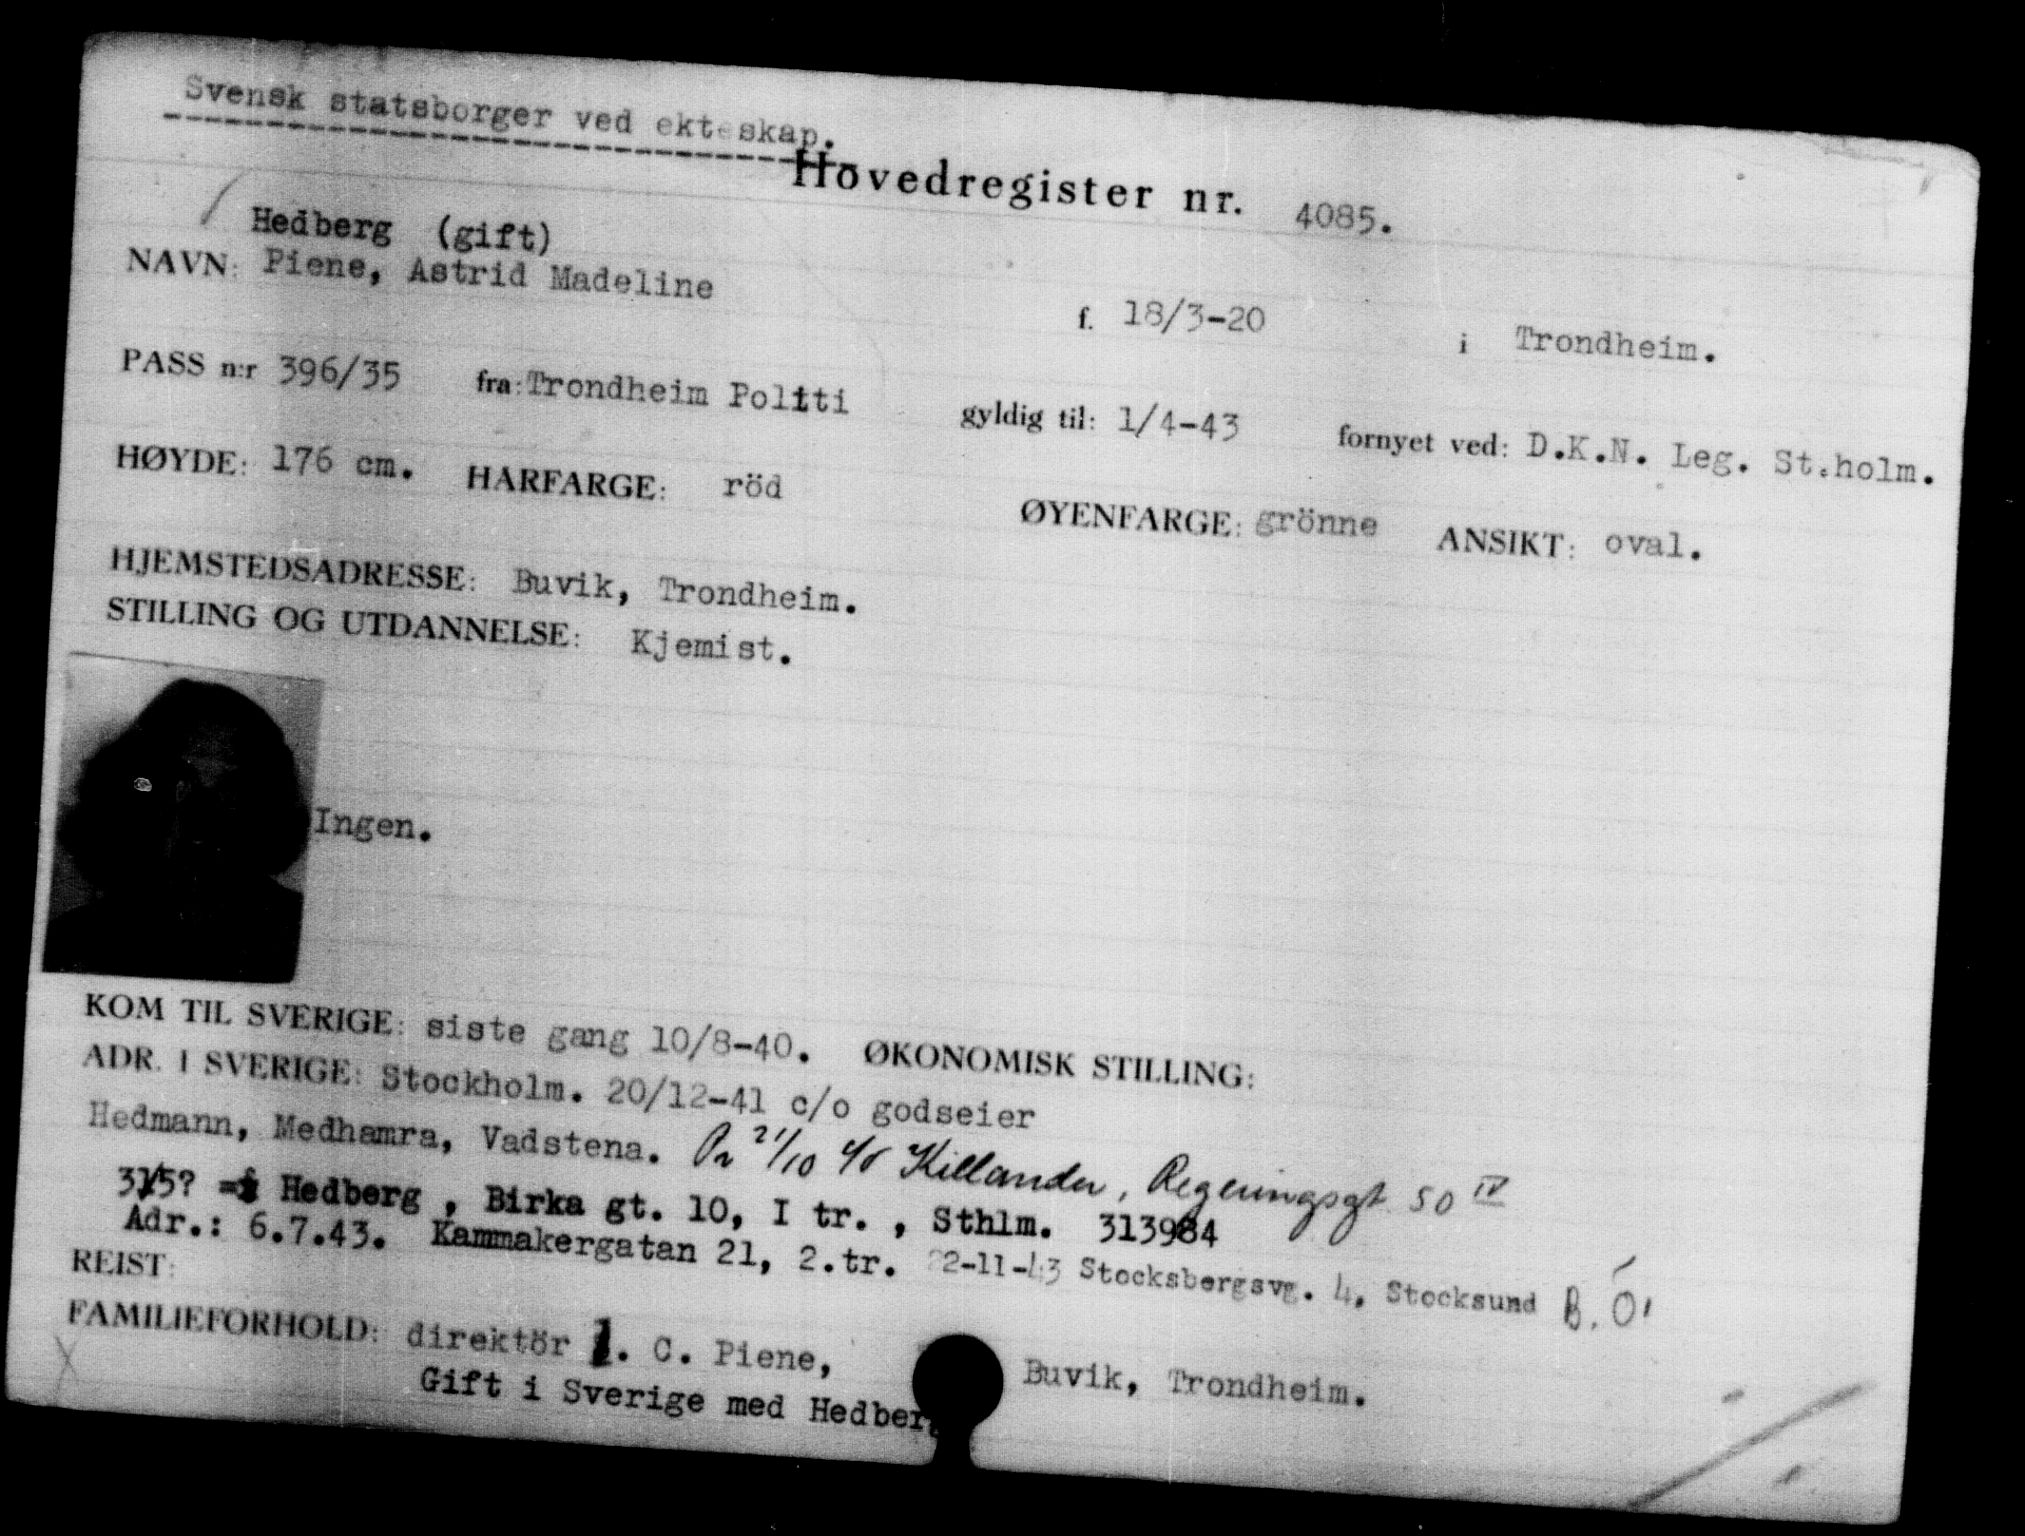 Svensk statsborger ved ekteskap.
Hovedregister nr. 4085.
Hedberg (gift)
NAVN: Piene, Astrid Madeline f. 18/3-20 i Trondheim.
PASS n:r 396/35 fra: Trondheim Politi gyldig til: 1/4-43 fornyet ved: D.K.N. Leg. St.holm.
HØYDE: 176 cm. HARFARGE: röd ØYENFARGE: grönne ANSIKT: oval.
HJEMSTEDSADRESSE: Buvik, Trondheim.
STILLING OG UTDANNELSE: Kjemist.
Ingen.
KOM TIL SVERIGE: siste gang 10/8-40. ØKONOMISK STILLING:
ADR. I SVERIGE: Stockholm. 20/12-41 c/o godseier
Hedmann, Medhamra, Vadstena. Pr 21/10 c/o Killander, Regeringsgt 50 IV
Hedberg, Birka gt. 10, I tr., Sthlm. 313984
Adr.: 6.7.43. Kammakergatan 21, 2.tr. 22-11-43 Stocksbergsvg. 4, Stocksund B.Ö!
REIST:
FAMILIEFORHOLD: direktör C. Piene, Buvik, Trondheim.
Gift i Sverige med Hedberg